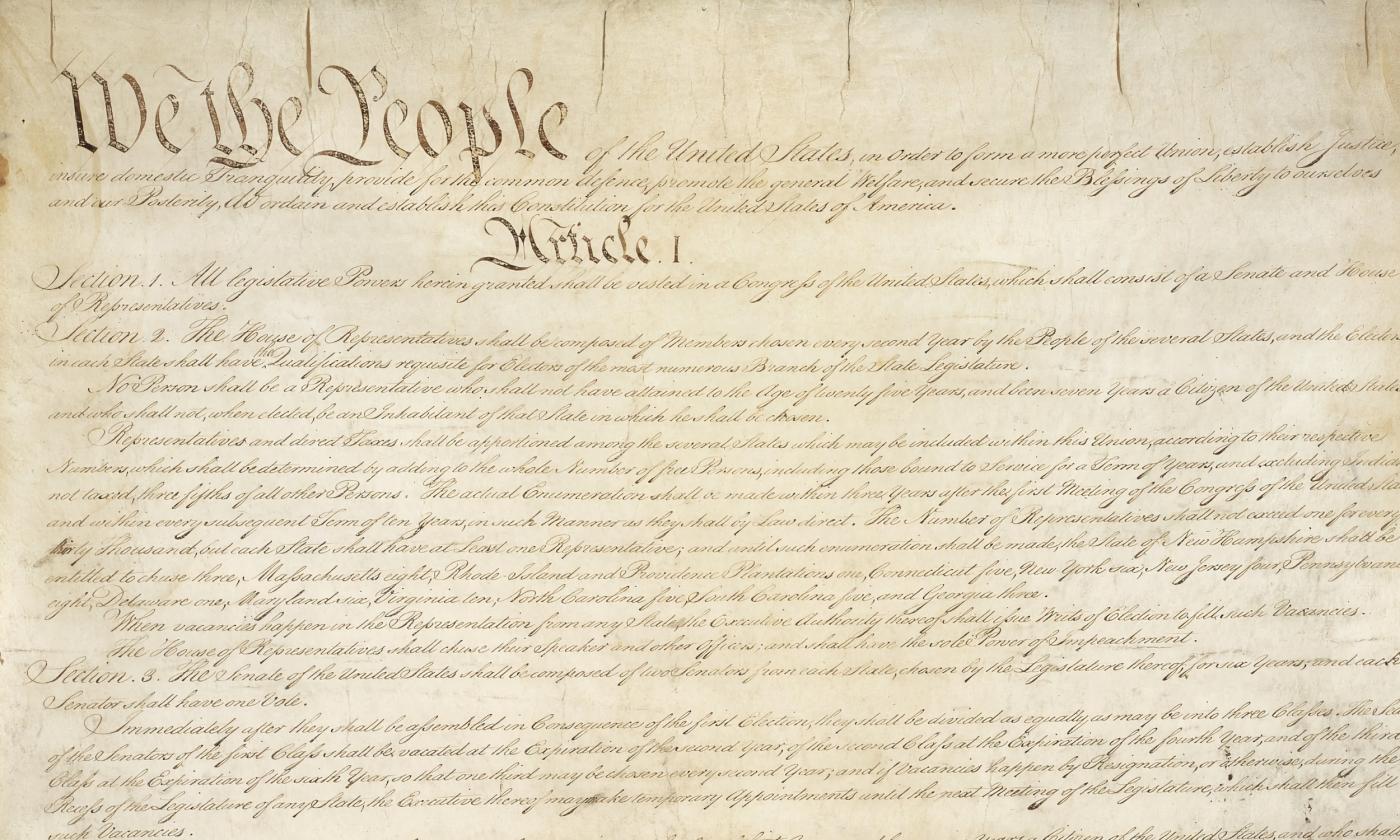 We the People of the United States, in Order to form a more perfect Union, establish Justice,
insure domestic Tranquility, provide for the common defence, promote the general Welfare, and secure the Blessings of Liberty to ourselves
and our Posterity, do ordain and establish this Constitution for the United States of America.
Article. I.
Section. 1. All legislative Powers herein granted shall be vested in a Congress of the United States, which shall consist of a Senate and House
of Representatives.
Section. 2. The House of Representatives shall be composed of Members chosen every second Year by the People of the several States, and the
in each State shall have the Qualifications requisite for Electors of the most numerous Branch of the State Legislature.
No Person shall be a Representative who shall not have attained to the Age of twenty five Years, and been seven Years a Citizen of the United
and who shall not, when elected, be an Inhabitant of that State in which he shall be chosen.
Representatives and direct Taxes shall be apportioned among the several States which may be included within this Union, according to their respective
Numbers, which shall be determined by adding to the whole Number of free Persons, including those bound to Service for a Term of Years, and excluding
not taxed, three fifths of all other Persons. The actual Enumeration shall be made within three Years after the first Meeting of the Congress of the United
and within every subsequent Term of ten Years, in such Manner as they shall by Law direct. The Number of Representatives shall not exceed one for every
thirty Thousand, but each State shall have at Least one Representative; and until such enumeration shall be made, the State of New Hampshire shall be
entitled to chuse three, Massachusetts eight, Rhode-Island and Providence Plantations one, Connecticut five, New-York six, New Jersey four,
eight, Delaware one, Maryland six, Virginia ten, North Carolina five, South Carolina five, and Georgia three.
When vacancies happen in the Representation from any State, the Executive Authority thereof shall issue Writs of Election to fill such Vacancies.
The House of Representatives shall chuse their Speaker and other Officers; and shall have the sole Power of Impeachment.
Section. 3. The Senate of the United States shall be composed of two Senators from each State, chosen by the Legislature thereof, for six Years; and each
Senator shall have one Vote.
Immediately after they shall be assembled in Consequence of the first Election, they shall be divided as equally as may be into three Classes. The
of the Senators of the first Class shall be vacated at the Expiration of the second Year, of the second Class at the Expiration of the fourth Year, and of the third
Class at the Expiration of the sixth Year, so that one third may be chosen every second Year; and if Vacancies happen by Resignation, or otherwise, during the
Recess of the Legislature of any State, the Executive thereof may make temporary Appointments until the next Meeting of the Legislature, which shall then fill
such Vacancies.
a Citizen of the United States, and who shall